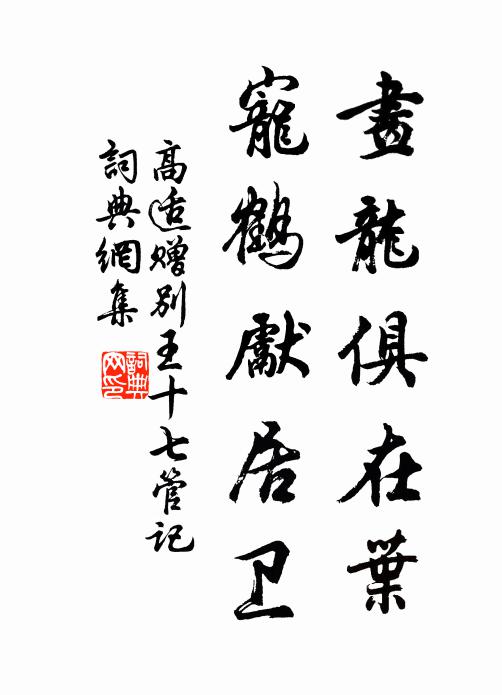 畫龍俱在葉
寵鶴獻居卫
高适贈別王十七管記
詞典網集
詞典网印